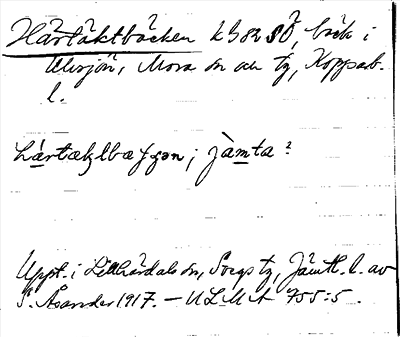 Hårtäktbäcken k 382 SÖ, bäck i
Venjan, Mora sn och tg, Kopparb.
l.
hártæktbækkən; jàmta?
Uppt. i Lillhärdals sn, Svegs tg, Jämtl. l. av
S. Åsander 1917. – ULMA 755:5.